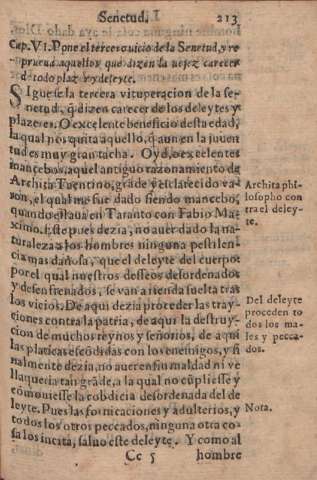 Senetud. 213
Cap. VI. Pone el tercero uicio de la Senetud, y re
prueua aquellos que dizen la uejez carecer
de todo plazer y deleyte.
SIguese la tercera vituperacion de la se-
netud, q̃ dizen carecer de los deleytes y
plazeres. O excelente beneficio desta edad,
la qual nos quita aquello, q̃ aun en la juuen
tud es muy gran tacha. Oyd, o excelentes
mancebos, aquel antiguo razonamiento de
Archita Tarentino, grãde y esclarecido va-
ron, el qual me fue dado siendo mancebo,
quando estaua en Taranto con Fabio Ma-
ximo. Este pues dezia, no auer dado la na-
turaleza a los hombres ninguna pestilen-
cia mas dañosa, que el deleyte del cuerpo:
por el qual nuestros desseos desordenados
y desenfrenados, se van a rienda suelta tras
los vicios. De aqui dezia proceder las tray-
ciones contra la patria, de aqui la destruy-
cion de muchos reynos y señorios, de aqui
las platicas escõdidas con los enemigos, y fi
nalmente dezia, no auer enfin maldad ni ve
llaqueria tan grãde, a la qual no cũpliesse y
comouiesse la cobdicia desordenada del de
leyte. Pues las fornicaciones y adulterios, y
todos los otros peccados, ninguna otra co-
sa los incita, saluo este deleyte. Y como al
Cc 5 hombre
Archita phi-
losopho con
tra el deley-
te.
Del deleyte
proceden to
dos los ma-
les y pecca-
dos.
Nota.